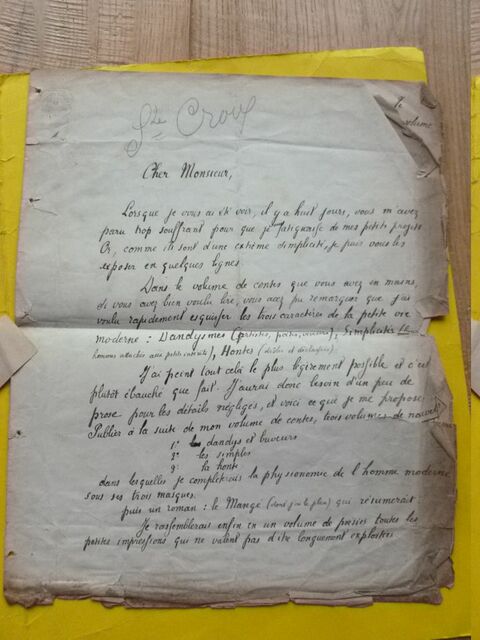 Ste Croix
le
volume
Cher Monsieur,
Lorsque je vous ai été voir, il y a huit jours, vous m'avez
paru trop souffrant pour que je fatiguasse de mes petits projets
Or, comme ils sont d'une extrême simplicité, je puis vous les
exposer en quelques lignes.
Dans le volume de contes que vous avez en mains,
et vous avez bien voulu lire, vous avez pu remarquer que j'ai
voulu rapidement esquisser les trois caractères de la petite vie
moderne : Dandysmes (artistes, poètes, viveurs), Simplicités
hommes attachés aux petits intérêts), Hontes (
J'ai peint tout cela le plus légèrement possible et c'est
plutôt ébauché que fait. J'aurais donc besoin d'un peu de
prose pour les détails négligés, et voici ce que je me propose :
Publier à la suite de mon volume de contes, trois volumes de
1º les dandys et buveurs
2º les simples
3º la honte
dans lesquelles je compléterais la physionomie de l'homme moderne
sous ses trois masques.
puis un roman : le Mangé (dont j'ai le plan) qui résumerait
Je rassemblerais enfin en un volume de poésies toutes les
petites impressions qui ne valent pas d'être longuement exploitées